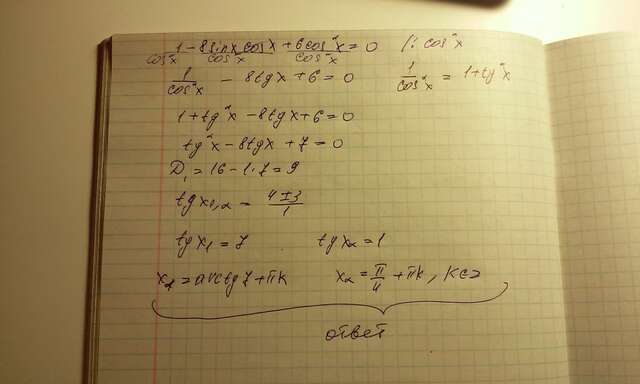 1 - 8sinx cosx + 6cos²x = 0 /: cos²x
cos²x cos²x cos²x
1/cos²x - 8tgx + 6 = 0 1/cos²x = 1+tg²x
1 + tg²x - 8tgx + 6 = 0
tg²x - 8tgx + 7 = 0
D₁ = 16 - 1·7 = 9
tgx₁,₂ = (4±3)/1
tgx₁ = 7 tgx₂ = 1
x₁ = arctg7 + πk x₂ = π/4 + πk, k∈Z
ответ